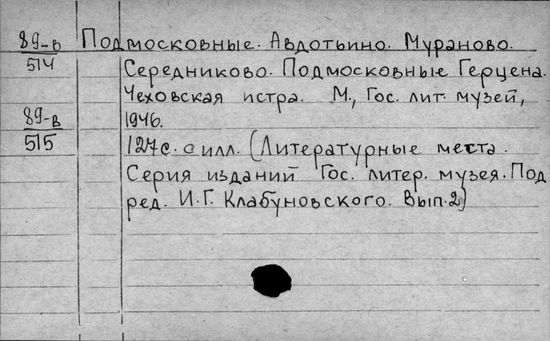 89-в Подмосковные. Авдотьино. Мураново.
514 Середниково. Подмосковные Герцена.
Чеховская истра. М., Гос. лит. музей,
89-в 1946.
515 127с. с илл. (Литературные места.
Серия изданий Гос. литер. музея. Под
ред. И.Г. Клабуновского. Вып. 2)